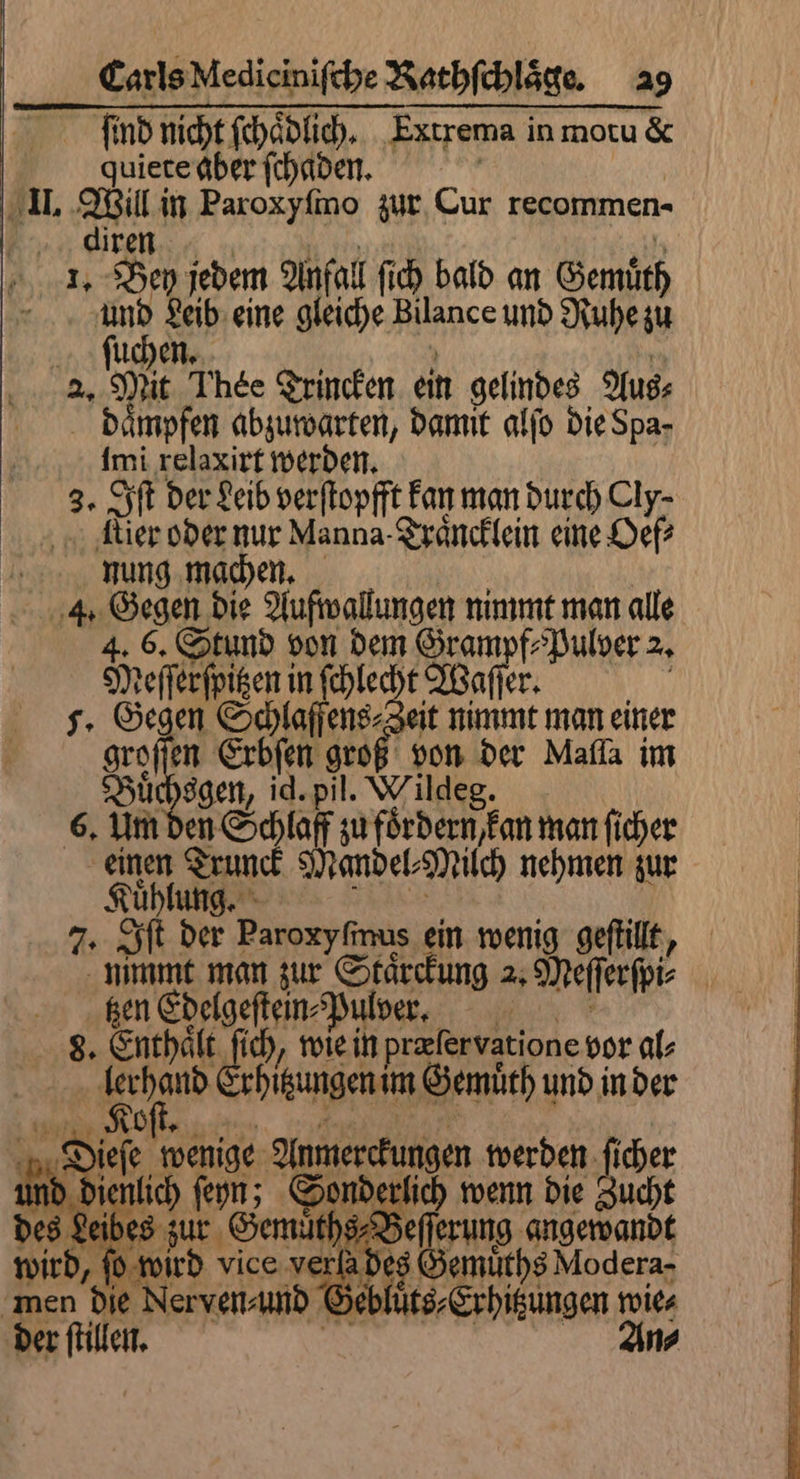 Carls Mediciniſche Rathſchlaͤge. 29
ſind nicht ſchaͤdlich. Extrema in motu &
quiete aber ſchaden.
II. Will in Paroxyſmo zur Cur recommen-
diren
1. Bey jedem Anfall ſich bald an Gemuͤth
und Leib eine gleiche Bilance und Ruhe zu
ſuchen.
2. Mit Thée Trincken ein gelindes Aus⸗
daͤmpfen abzuwarten, damit alſo die Spa-
ſmi relaxirt werden.
3. Iſt der Leib verſtopfft kan man durch Cly-
ſtier oder nur Manna-Traͤncklein eine Oef⸗
nung machen.
4. Gegen die Aufwallungen nimmt man alle
4. 6. Stund von dem Grampf⸗Pulver 2.
Meſſerſpitzen in ſchlecht Waſſer.
5. Gegen Schlaffens⸗Zeit nimmt man einer
groſſen Erbſen groß von der Maſſa im
Buͤchsgen, id. pil. Wildeg.
6. Um den Schlaff zu foͤrdern, kan man ſicher
einen Trunck Mandel⸗Milch nehmen zur
Kuͤhlung.
7. Iſt der Paroxyſmus ein wenig geſtillt,
nimmt man zur Staͤrckung 2. Meſſerſpi⸗
tzen Edelgeſtein⸗Pulver.
8. Enthaͤlt ſich, wie in præſervatione vor al⸗
lerhand Erhitzungen im Gemuͤth und in der
Koſt.
Dieſe wenige Anmerckungen werden ſicher
und dienlich ſeyn; Sonderlich wenn die Zucht
des Leibes zur Gemuͤths⸗Beſſerung angewandt
wird, ſo wird vice verſa des Gemuͤths Modera-
men die Nerven⸗und Gebluͤts⸗Erhitzungen wie⸗
der ſtillen.
An⸗